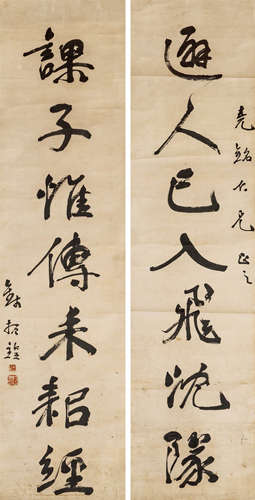 避人已入飛沈隊
堯銘仁兄正之
課子惟傳耒耜經